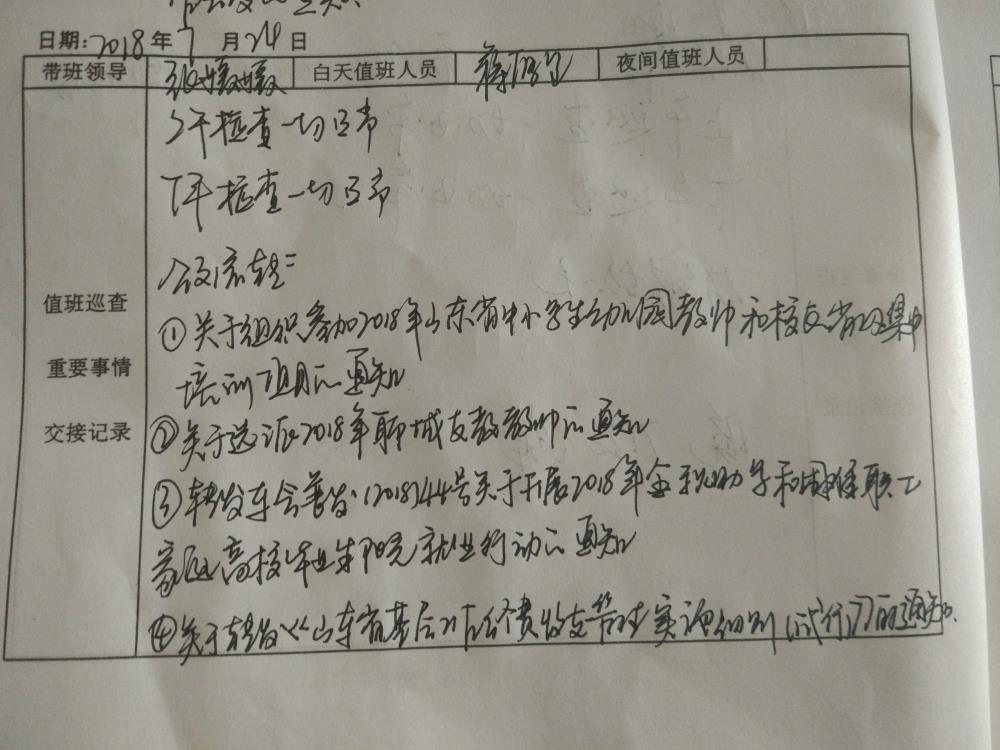 日期:2018年7月24日
带班领导 张媛媛 白天值班人员 夜间值班人员
上午检查一切正常
下午检查一切正常
值班巡查
重要事情
交接记录
公文流转:
①关于组织参加2018年山东省中小学生幼儿园教师和校长省级集中
培训项目的通知
②关于选派2018年聊城支教教师的通知
③转发东会普发(2018)44号关于开展2018年金秋助学和困难职工
家庭高校毕业生阳光就业行动的通知
④关于转发《山东省基层工会经费收支管理实施细则(试行)》的通知.